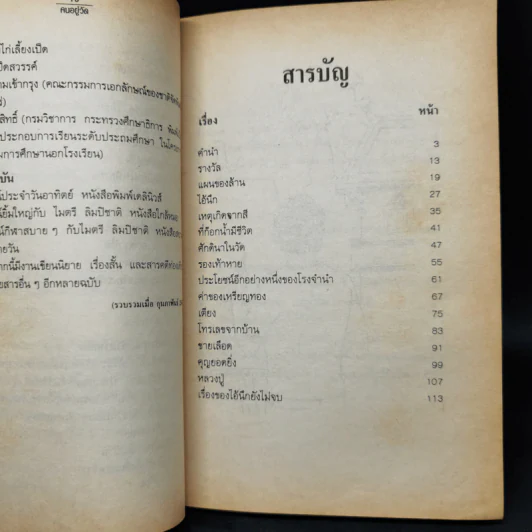 คนอยู่วัด
ไก่เลี้ยงเป็ด
ป็ดสวรรค์
มเข้ากรุง (คณะกรรมการเอกลักษณ์ของชาติ
สิทธิ์ (กรมวิชาการ กระทรวงศึกษาธิการ
ประกอบการเรียนระดับประถมศึกษา
มการศึกษานอกโรงเรียน)
บัน
ประจำวันอาทิตย์ หนังสือพิมพ์เดลินิวส์
ยิ้มใหญ่กับ ไมตรี ลิมปิชาติ หนังสือใกล้หมอ
กีฬาสบาย ๆ กับไมตรี ลิมปิชาติ หนังสือ
ายวัน
กนี้มีงานเขียนนิยาย เรื่องสั้น และสารคดี
ยสารอื่น ๆ อีกหลายฉบับ
(รวบรวมเมื่อ กุมภาพันธ์
สารบัญ
เรื่อง หน้า
คำนำ 3
รางวัล 13
แผนของล้าน 19
ไอ้นึก 27
เหตุเกิดจากสี 35
ที่ก๊อกน้ำมีชีวิต 41
ศักดินาในวัด 47
รองเท้าหาย 55
ประโยชน์อีกอย่างหนึ่งของโรงจำนำ 61
ค่าของเหรียญทอง 67
เตียง 75
โทรเลขจากบ้าน 83
ชายเลือด 91
คุณยอดยิ่ง 99
หลวงปู่ 107
เรื่องของไอ้นึกยังไม่จบ 113